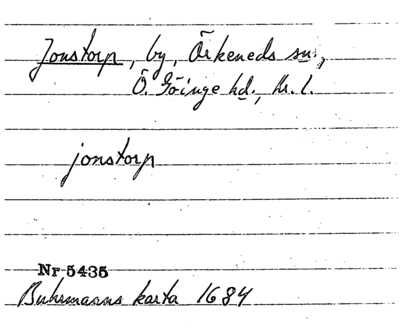 Jonstorp, by, Örkeneds sn.,
Ö. Göinge hd., Kr. l.
jonstorp
Nr 5435
Buhrmanns karta 1684